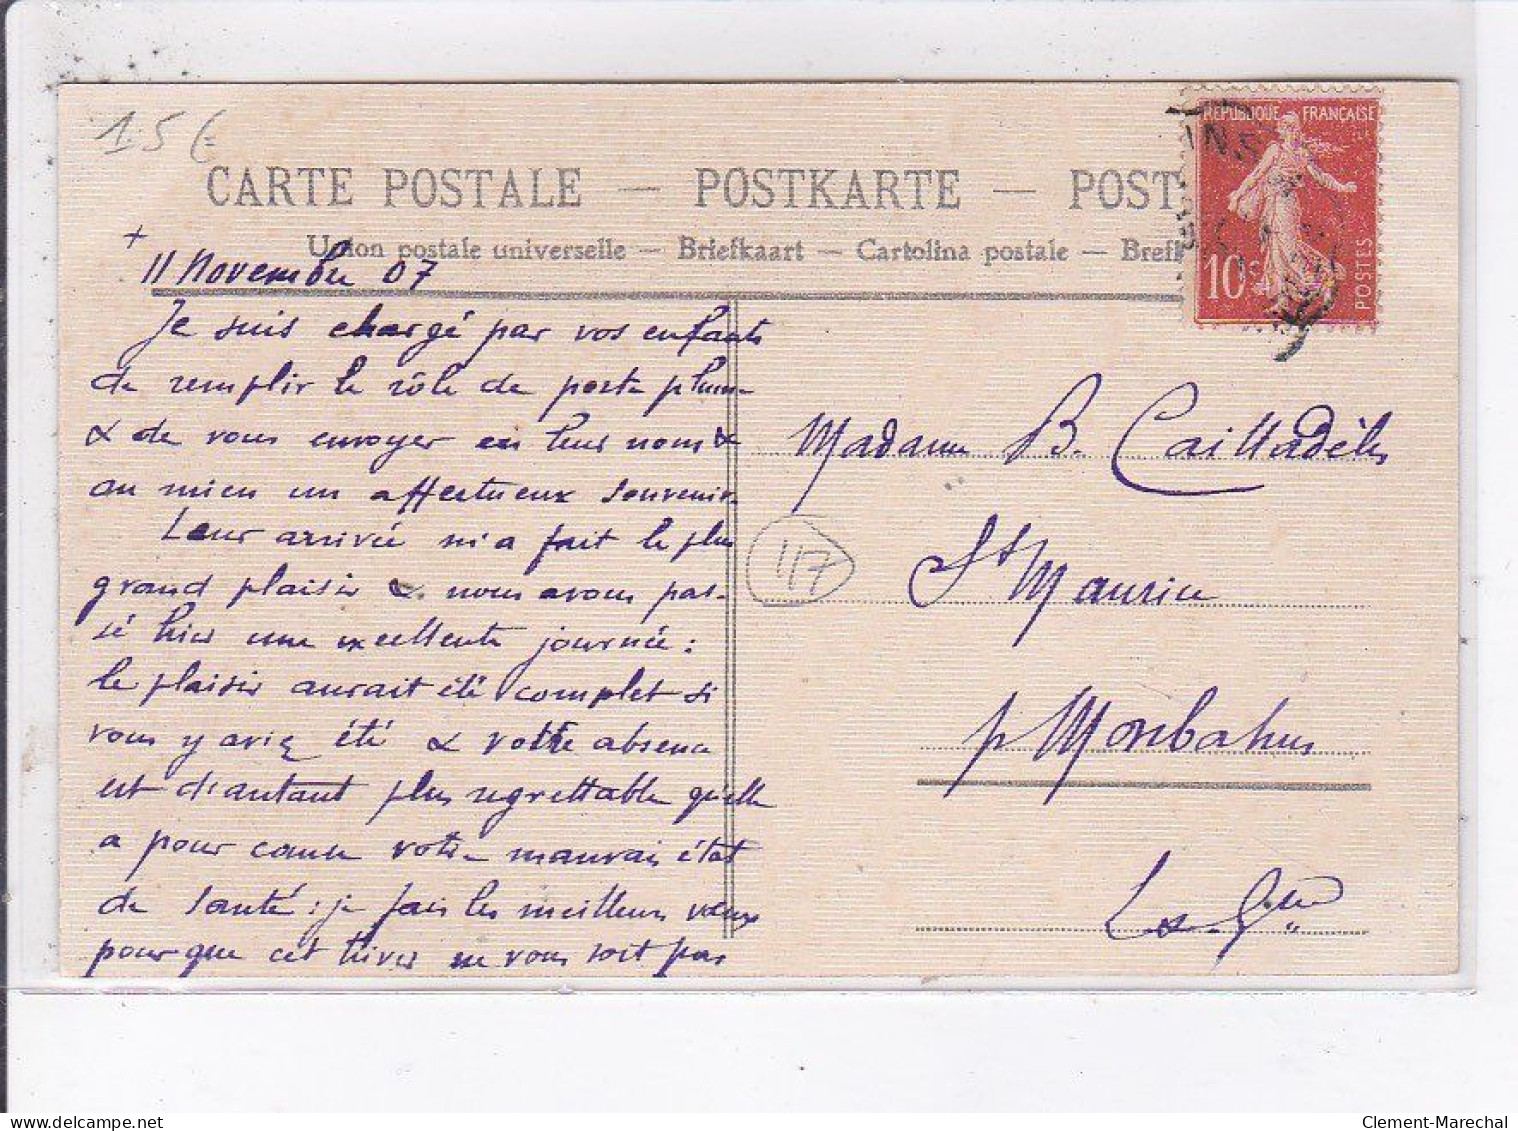 15 €
CARTE POSTALE — POSTKARTE — POST
Union postale universelle — Briefkaart — Cartolina postale — Brefk
REPUBLIQUE FRANÇAISE
10c
POSTES
INS
+
11 Novembre 07
Je suis chargé par vos enfants
de remplir le rôle de porte plume
& de vous envoyer en leurs noms &
au mien un affectueux souvenir.
Leur arrivée m'a fait le plus
grand plaisir & nous avons pas-
sé hier une excellente journée :
le plaisir aurait été complet si
vous y aviez été & votre absence
est d'autant plus regrettable qu'elle
a pour cause votre mauvais état
de santé : je fais les meilleurs vœux
pour que cet hiver ne vous soit pas
Madame B. Cailladèlles
117
St Maurice
p Monbahus
L & Gne
Clement-Marechal